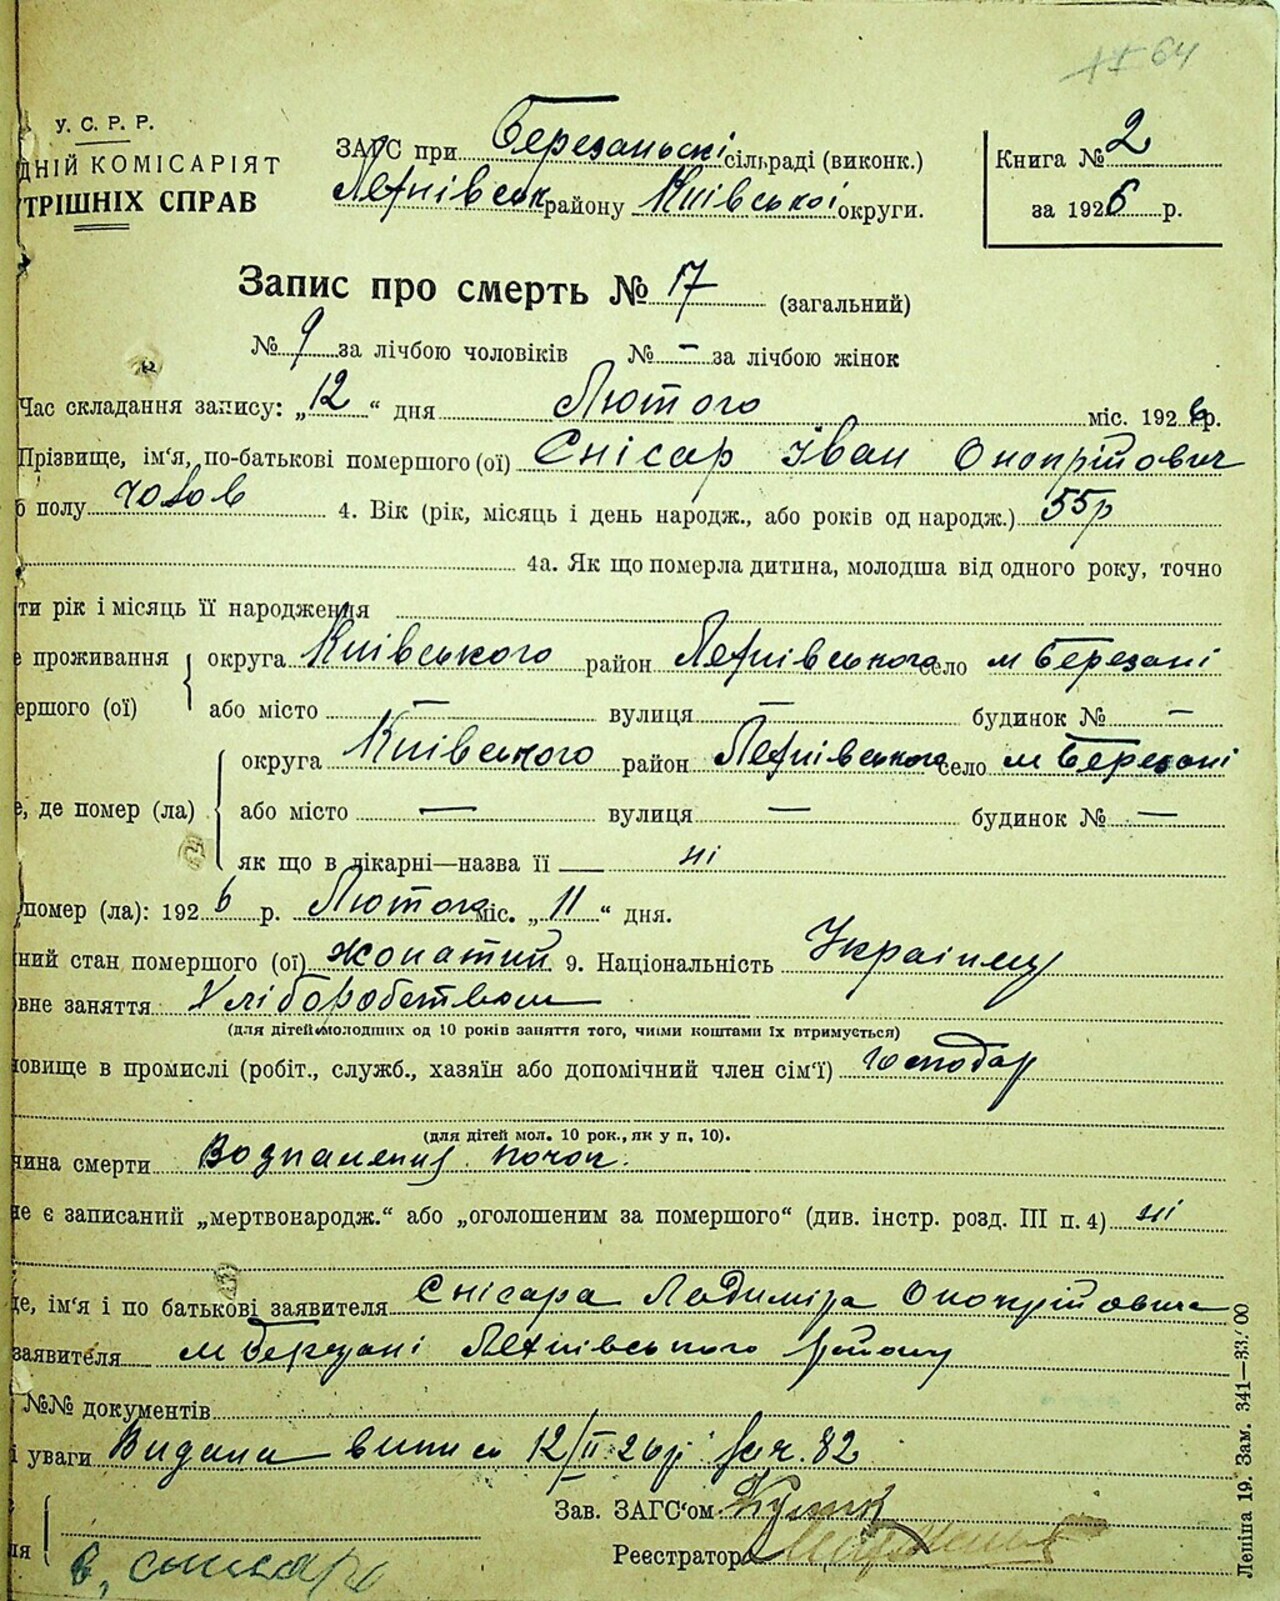 64
У. С. Р. Р.
ДНІЙ КОМІСАРІЯТ
ТРІШНІХ СПРАВ
ЗАГС при Березанські сільраді (виконк.)
району Київської округи.
Книга № 2
за 1926 р.
Запис про смерть № 17 (загальний)
№ 9 за лічбою чоловіків № – за лічбою жінок
Час складання запису: „12“ дня Лютого міс. 1926 р.
Прізвище, ім'я, по-батькові помершого (ої) Снісар Іван Онопрійович
о полу чолов 4. Вік (рік, місяць і день народж., або років од народж.) 55 р
4а. Як що померла дитина, молодша від одного року, точно
ти рік і місяць її народження
е проживання округа Київського район село м Березані
ершого (ої) або місто – вулиця – будинок № –
округа Київського район село м Березані
е, де помер (ла) або місто — вулиця — будинок № —
як що в лікарні—назва її — ні
помер (ла): 1926 р. Лютого міс. „11“ дня.
ний стан помершого (ої) жонатий 9. Національність Українец
вне заняття Хліборобством
(для дітей молодших од 10 років заняття того, чиїми коштами їх втримується)
овище в промислі (робіт., служб., хазяїн або допомічний член сім'ї) Господар
(для дітей мол. 10 рок., як у п. 10).
чина смерти Воспаления почок.
не є записаний „мертвонародж.“ або „оголошеним за помершого“ (див. інстр. розд. III п. 4) ні
ще, ім'я і по батькові заявителя Снісара Ладиміра Онопрійовича
заявителя м Березані району
№№ документів
і уваги Видана випись 12/II 26 р. 82
Зав. ЗАГС'ом
ля
Реєстратор
в, снисар
Леніна 19. Зам. 341—33.'00